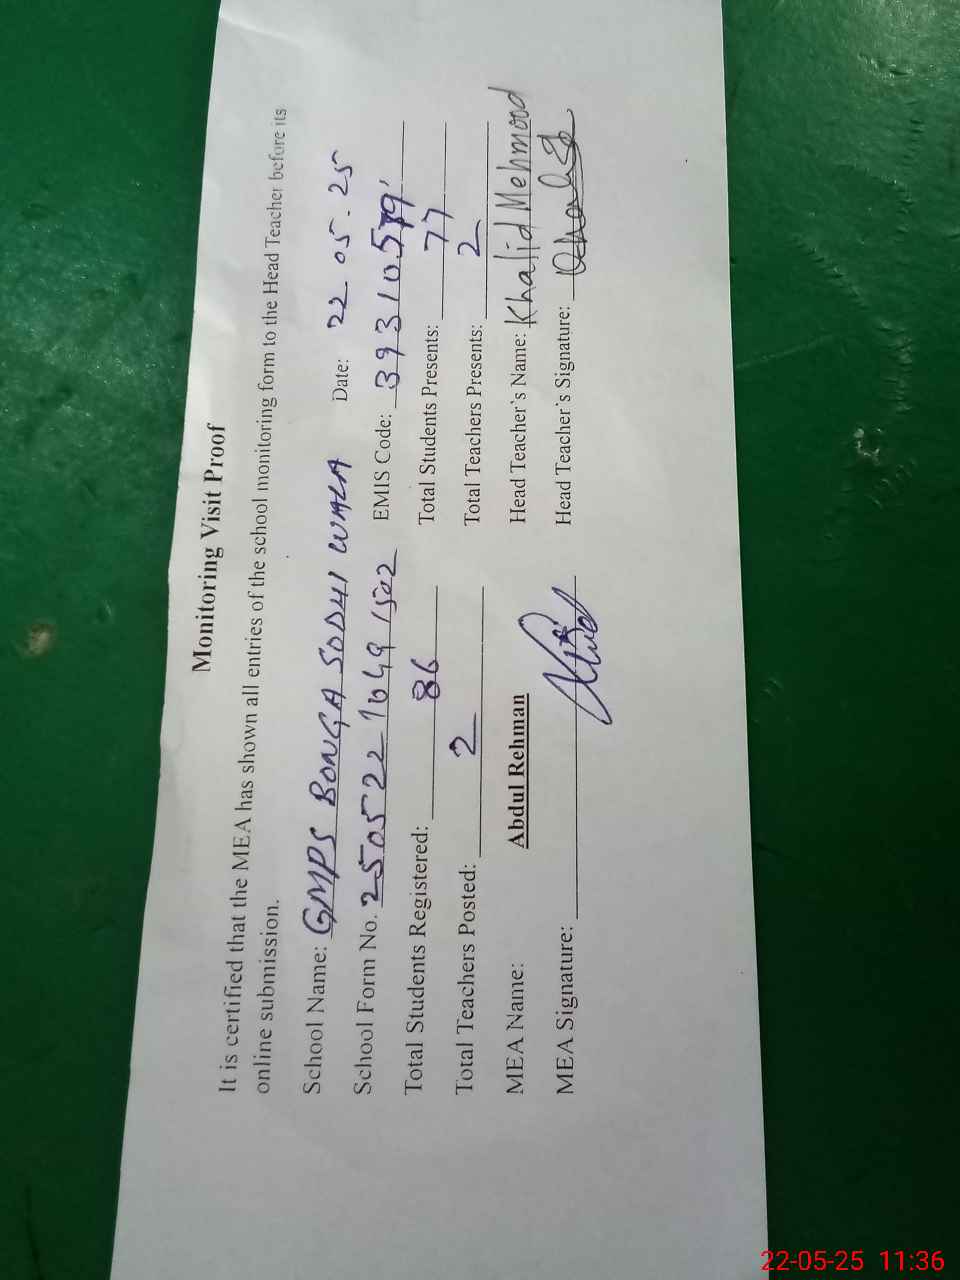 Monitoring Visit Proof
It is certified that the MEA has shown all entries of the school monitoring form to the Head Teacher before its
online submission.
School Name: GMPS BONGA SODHI WALA Date: 22 05.25
School Form No. 250522 1649 1502 EMIS Code: 39310519
Total Students Registered: 86 Total Students Presents: 77
Total Teachers Posted: 2 Total Teachers Presents: 2
MEA Name: Abdul Rehman Head Teacher's Name: Khalid Mehmood
MEA Signature: Head Teacher's Signature:
22-05-25 11:36